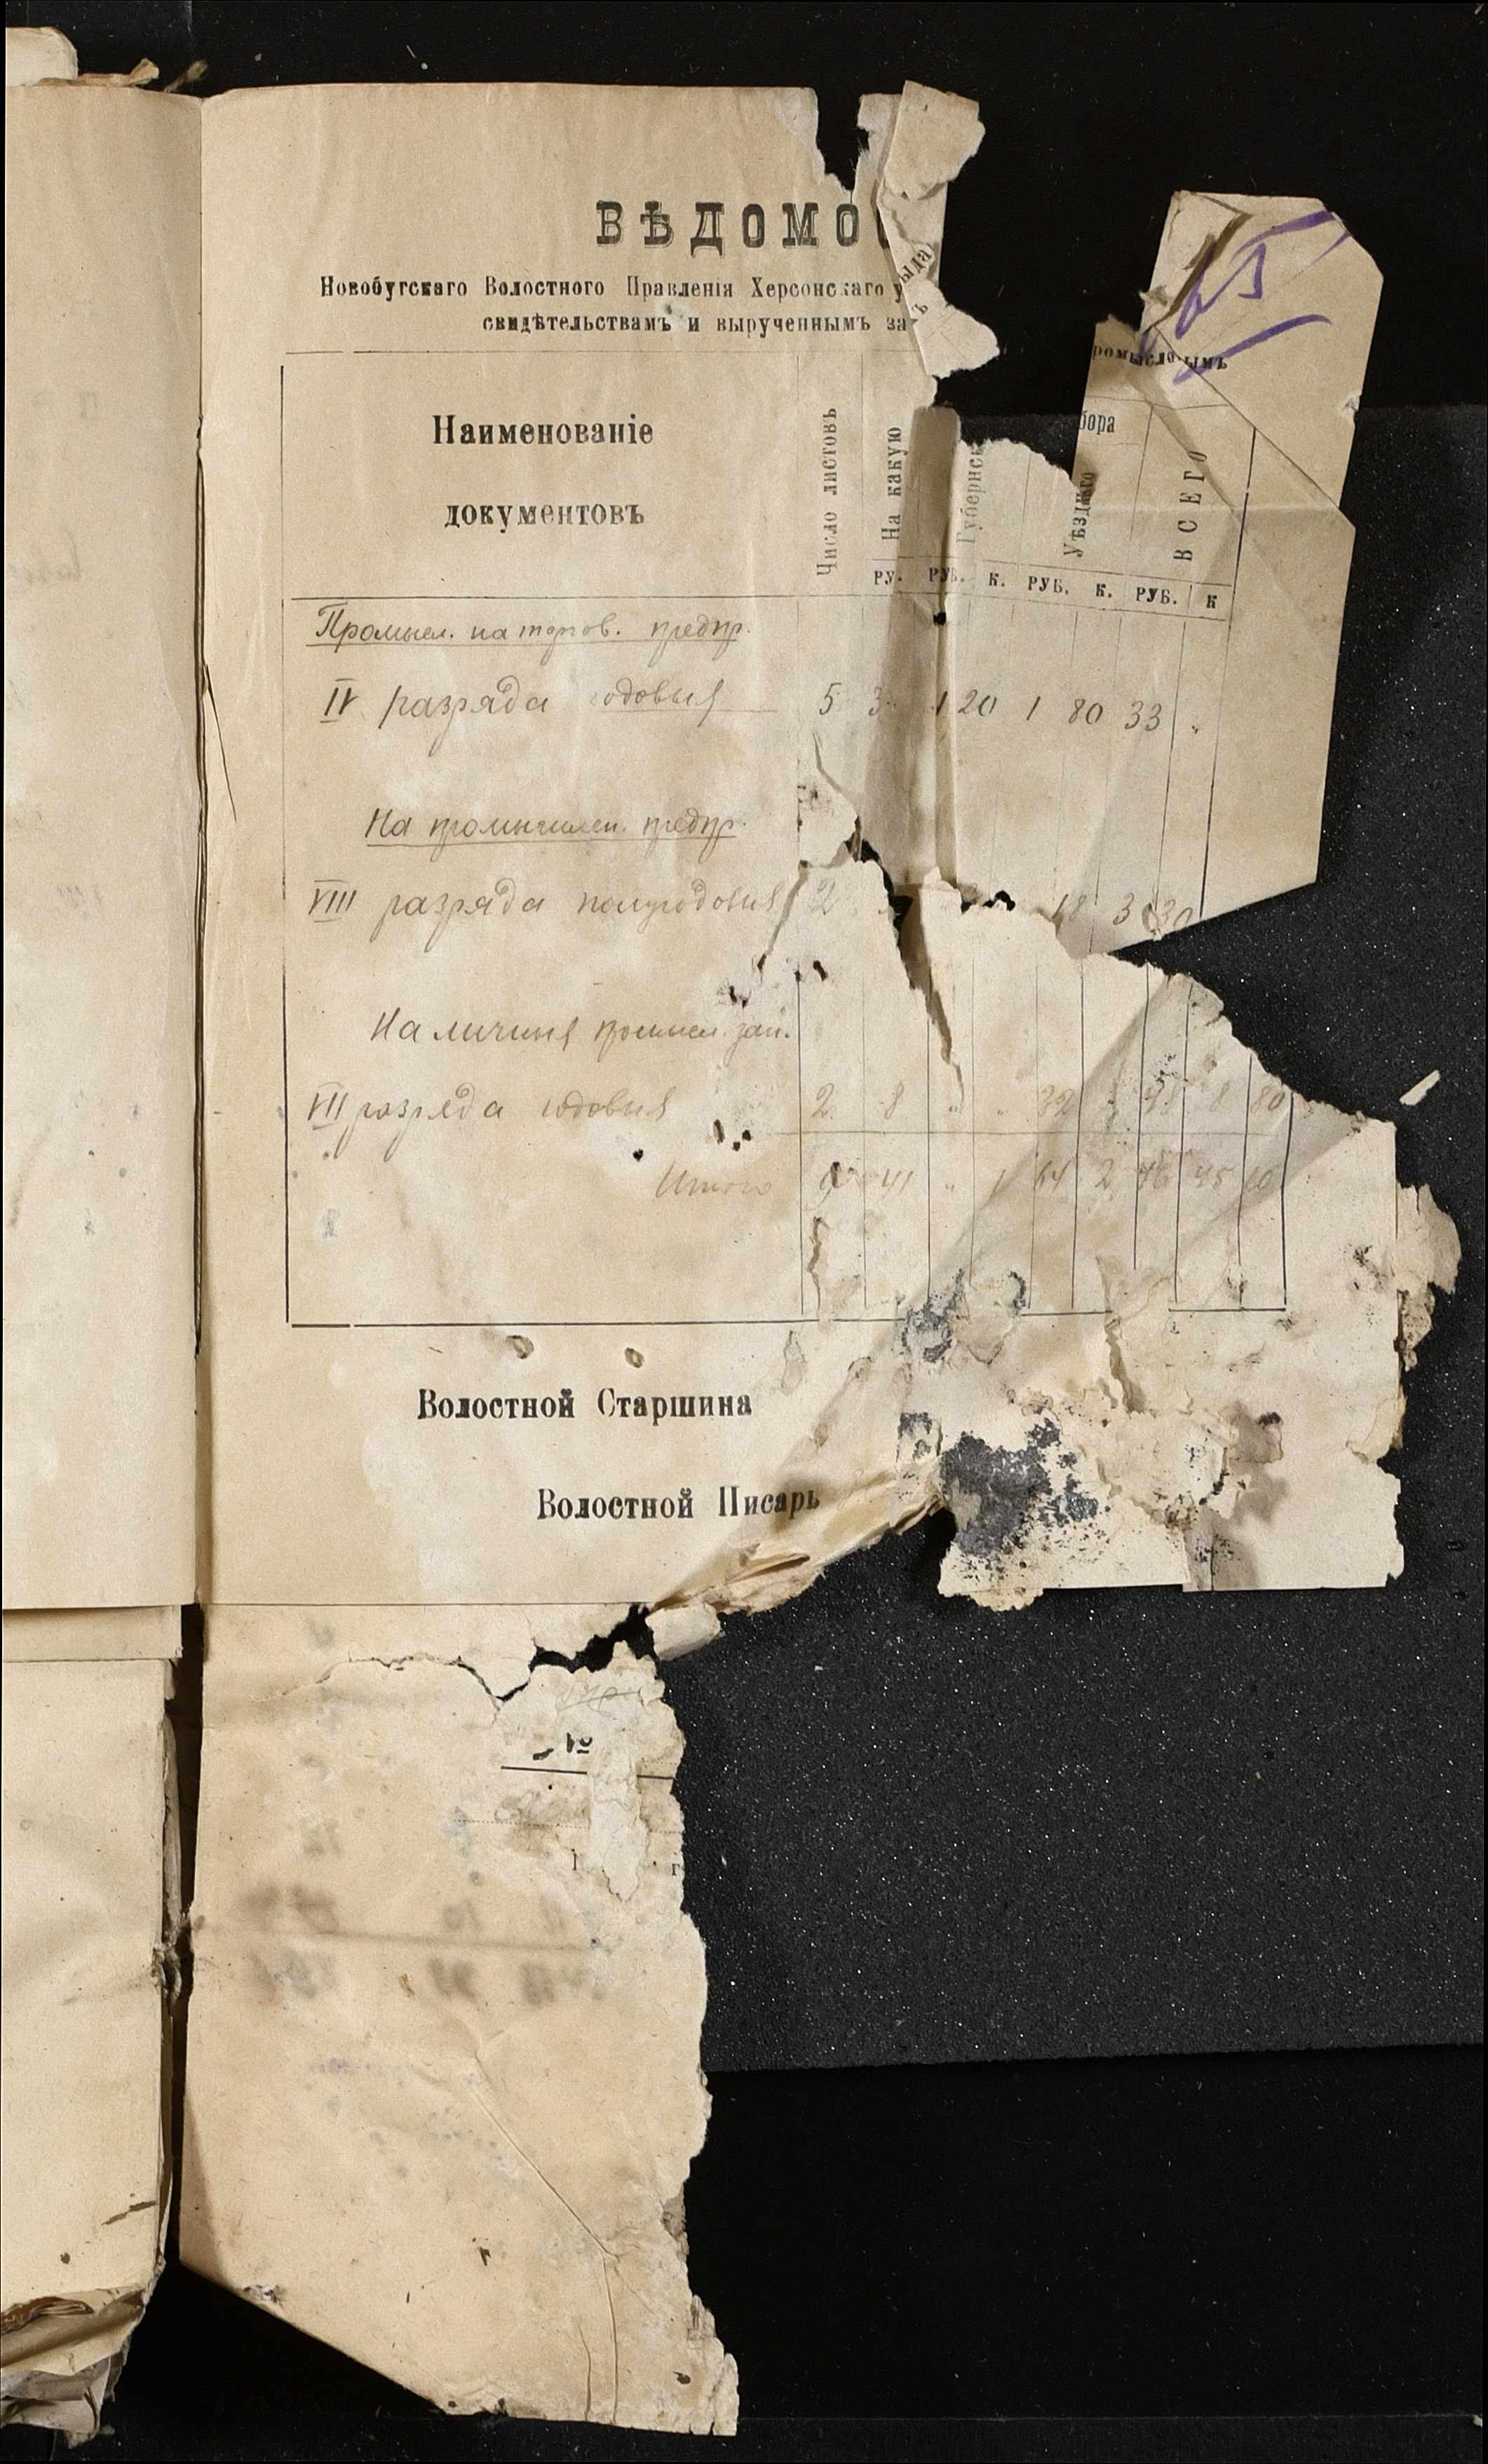 65
ВѢДОМОС
ыда
Новобугскаго Волостного Правленія Херсонскаго у
ромысловымъ
свидѣтельствамъ и вырученнымъ за
Наименованіе
документовъ
Число листовъ
На какую
Губернск
бора
Уѣзднаго
ВСЕГО
РУ. РУБ. К. РУБ. К. РУБ. К
Промысл. на торгов. предпр.
IV разряда годовыя 5 3 1 20 1 80 33 "
На промышлен. предпр.
VIII разряда полугодовыя 2 18 3 30
На личныя промысл. зан.
VII разряда годовыя 2 8 " " 32 48 8 80
Итого 9 41 " 1 64 2 46 45 10
Волостной Старшина
Волостной Писарь
№
1 г